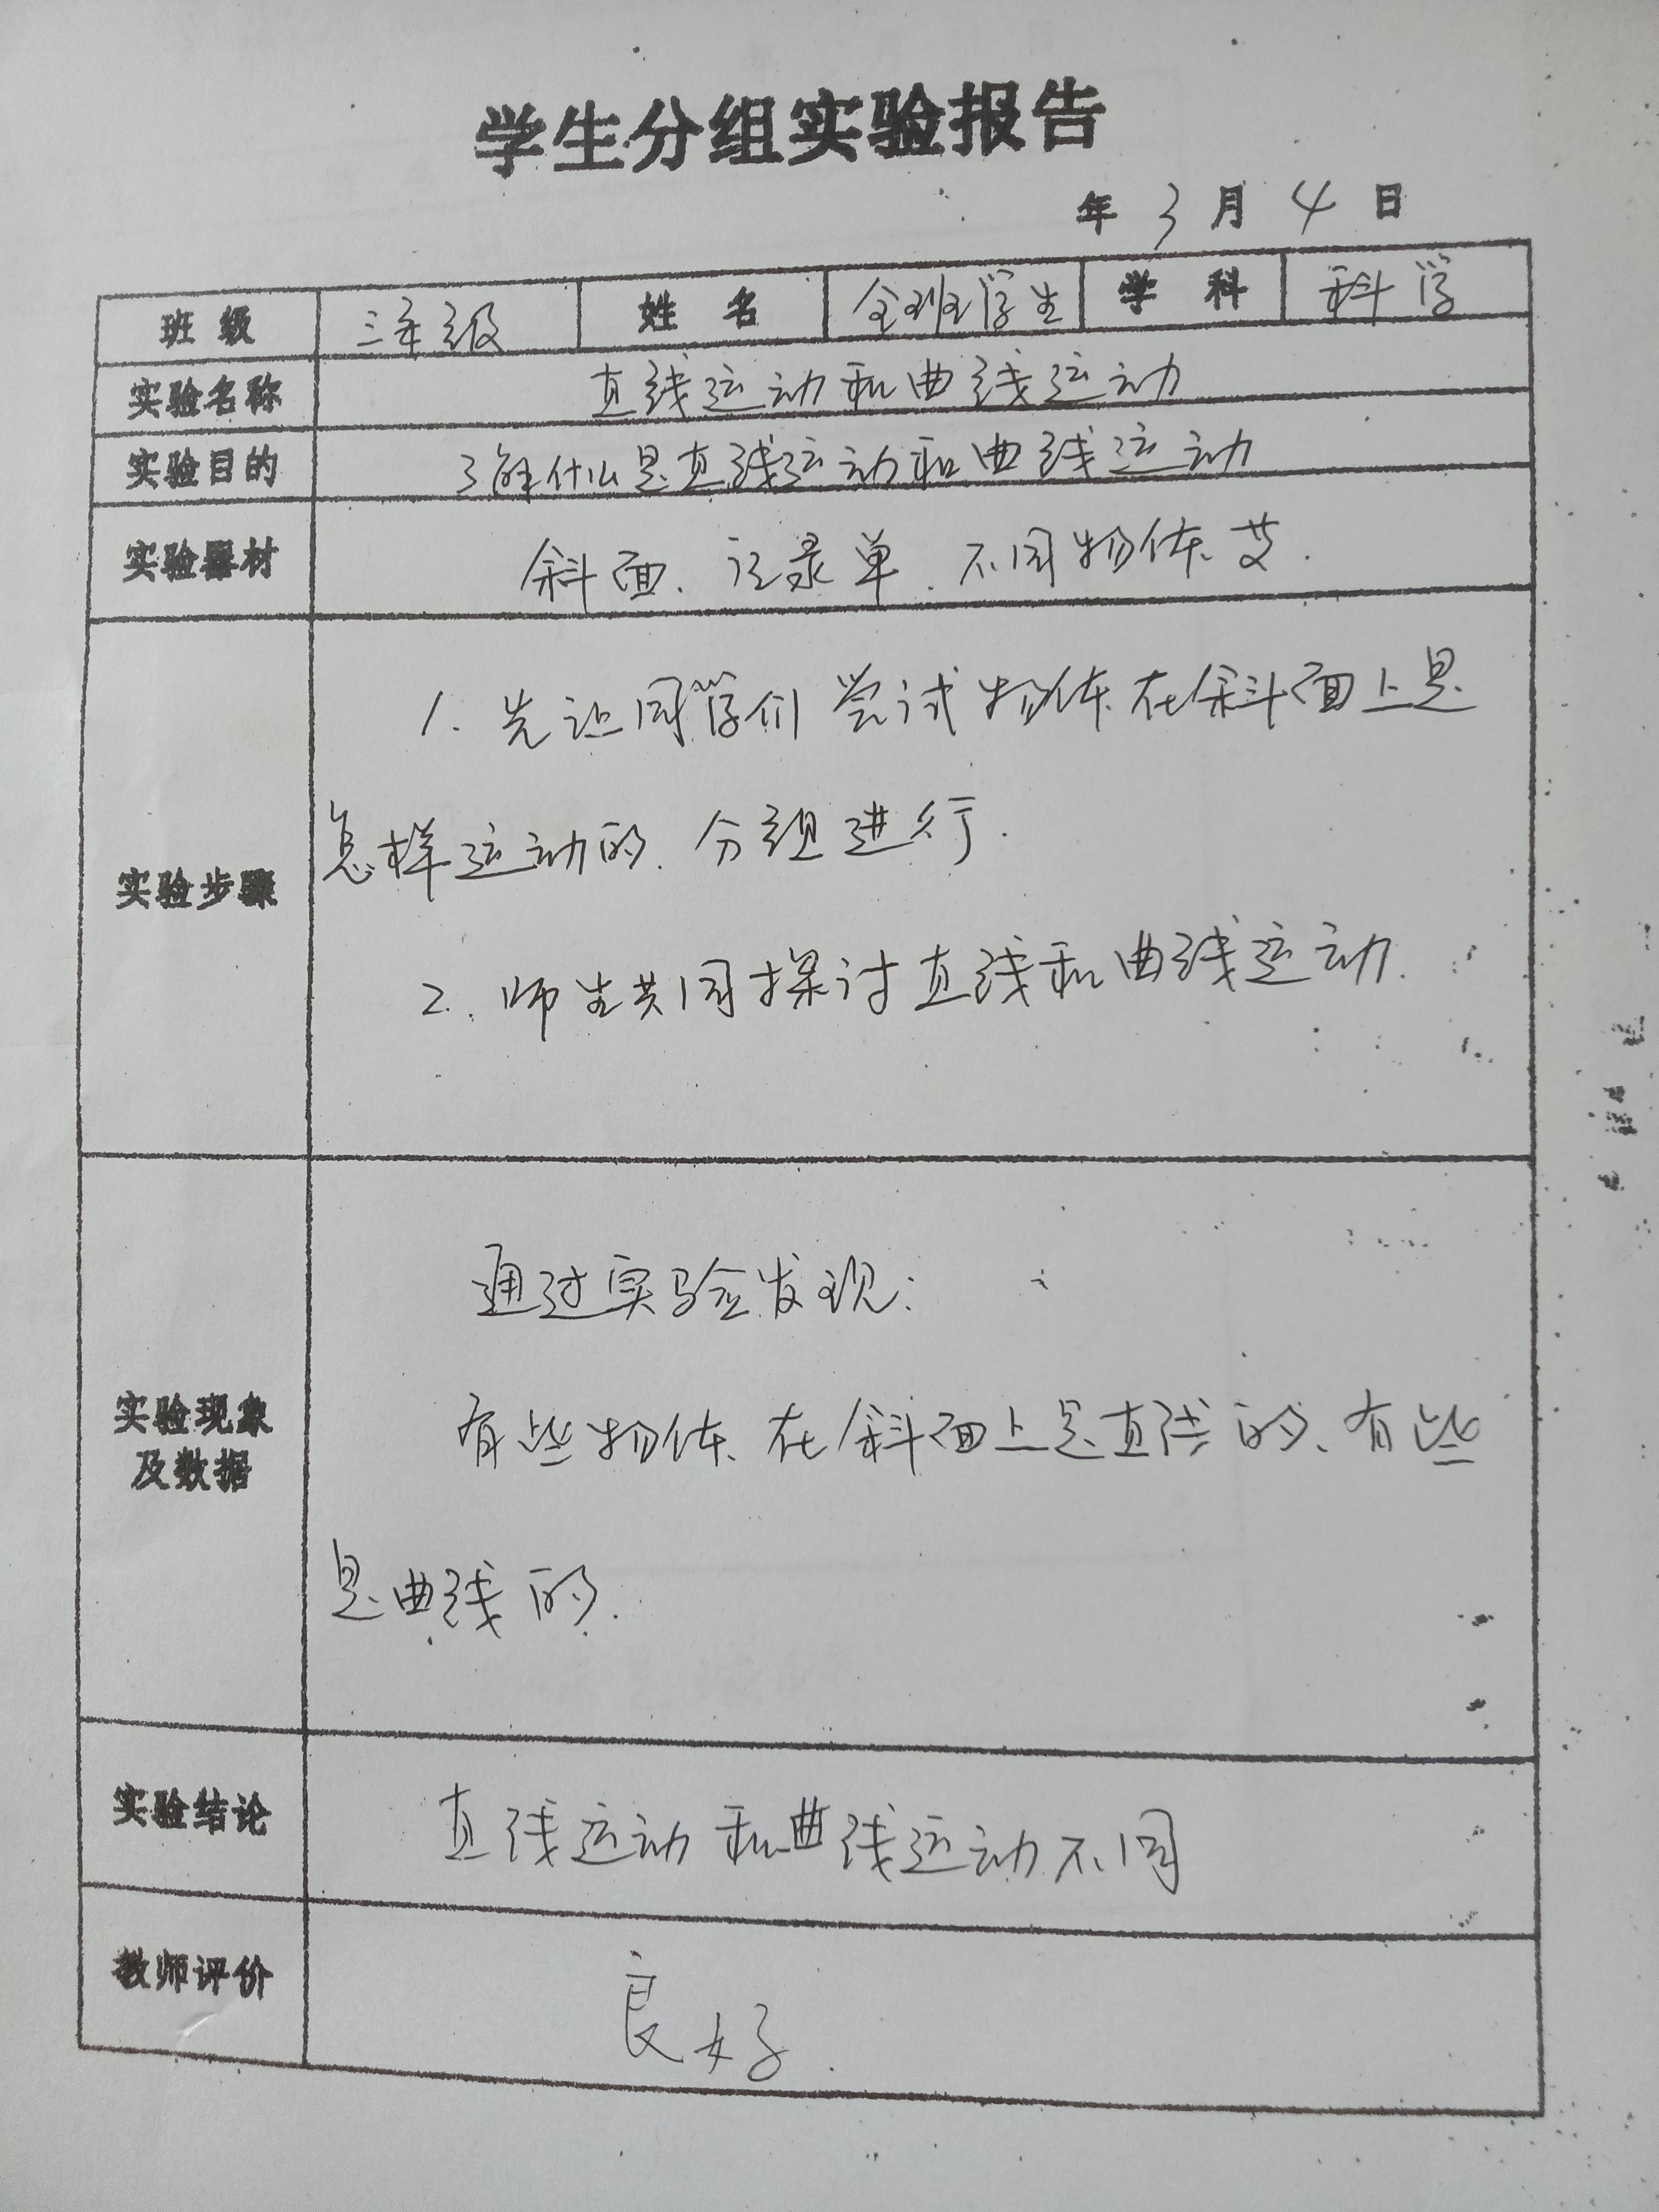 学生分组实验报告
年 3 月 4 日
班 级 三年级 姓 名 全班学生 学 科 科学
实验名称 直线运动和曲线运动
实验目的 了解什么是直线运动和曲线运动
实验器材 斜面、记录单、不同物体、
实验步骤
1. 先让同学们尝试物体在斜面上是
怎样运动的、分组进行.
2. 师生共同探讨直线和曲线运动.
实验现象
及数据
通过实验发现:
有些物体在斜面上是直线的、有些
是曲线的.
实验结论 直线运动和曲线运动不同
教师评价 良好.